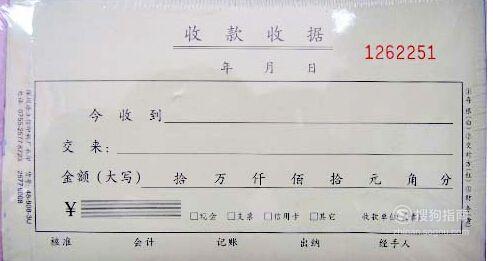 收款收据
1262251
年 月 日
今收到
交来：
金额（大写） 拾 万 仟 佰 拾 元 角 分
¥ □现金 □支票 □信用卡 □其它 收款单位
核准 会计 记账 出纳 经手人
搜狗指南
zhinan.sogou.com